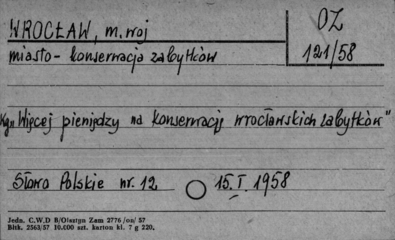 WROCŁAW, m. woj
OZ
miasto - konserwacja zabytków
121/58
Kg „Więcej pieniędzy na konserwację wrocławskich zabytków"
Słowo Polskie nr. 12 15.I.1958
Jedn. C.W.D B/Olsztyn Zam 2776/on/57
Bltk. 2563/57 10.000 szt. karton kl. 7 g 220.